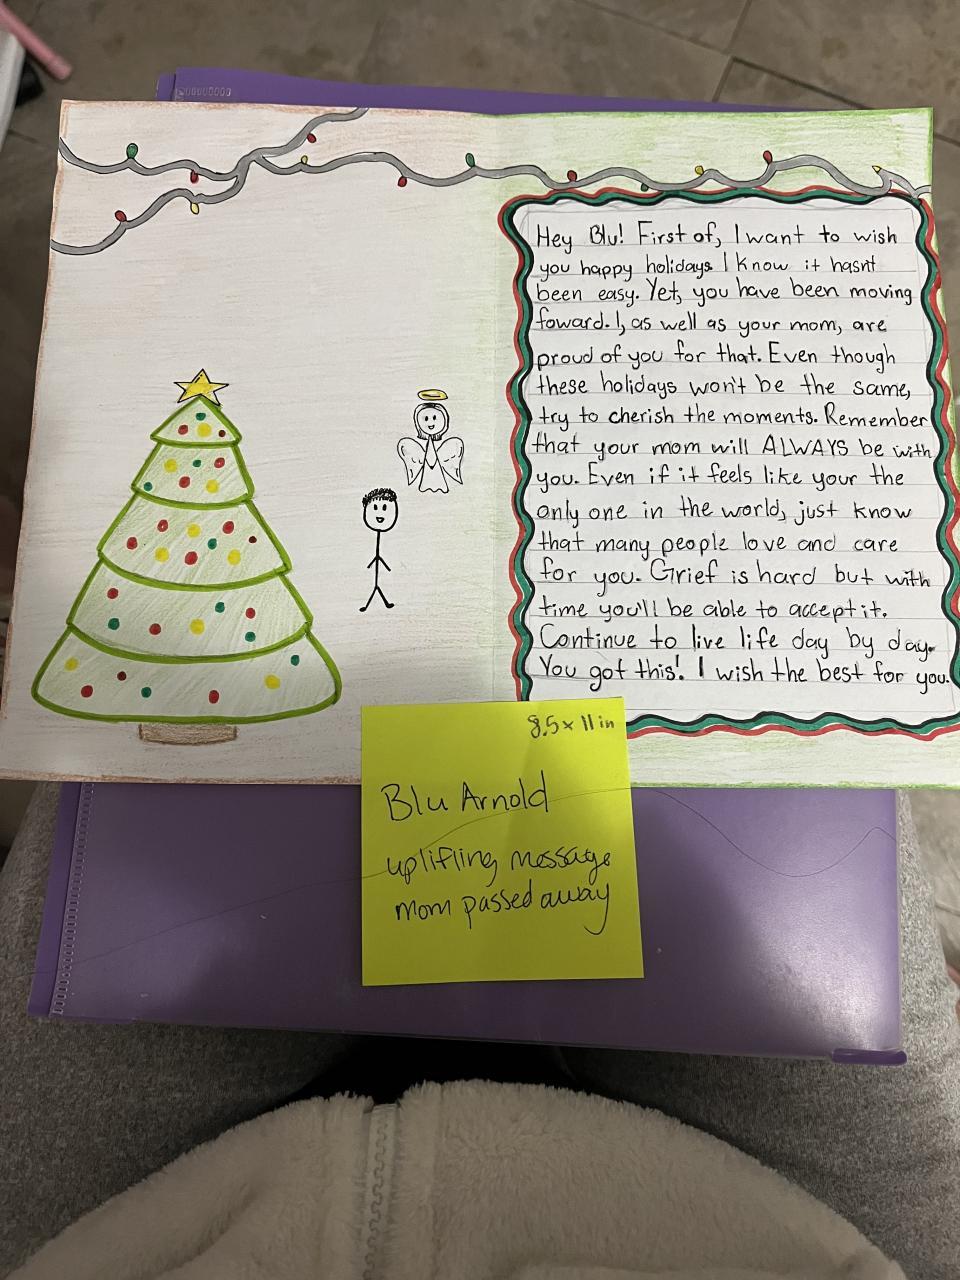 Hey Blu! First of, I want to wish
you happy holidays. I know it hasnt
been easy. Yet, you have been moving
foward. I, as well as your mom, are
proud of you for that. Even though
these holidays won't be the same,
try to cherish the moments. Remember
that your mom will ALWAYS be with
you. Even if it feels like your the
only one in the world, just know
that many people love and care
for you. Grief is hard but with
time you'll be able to accept it.
Continue to live life day by day.
You got this! I wish the best for you.
8.5 x 11 in
Blu Arnold
uplifling message
mom passed away